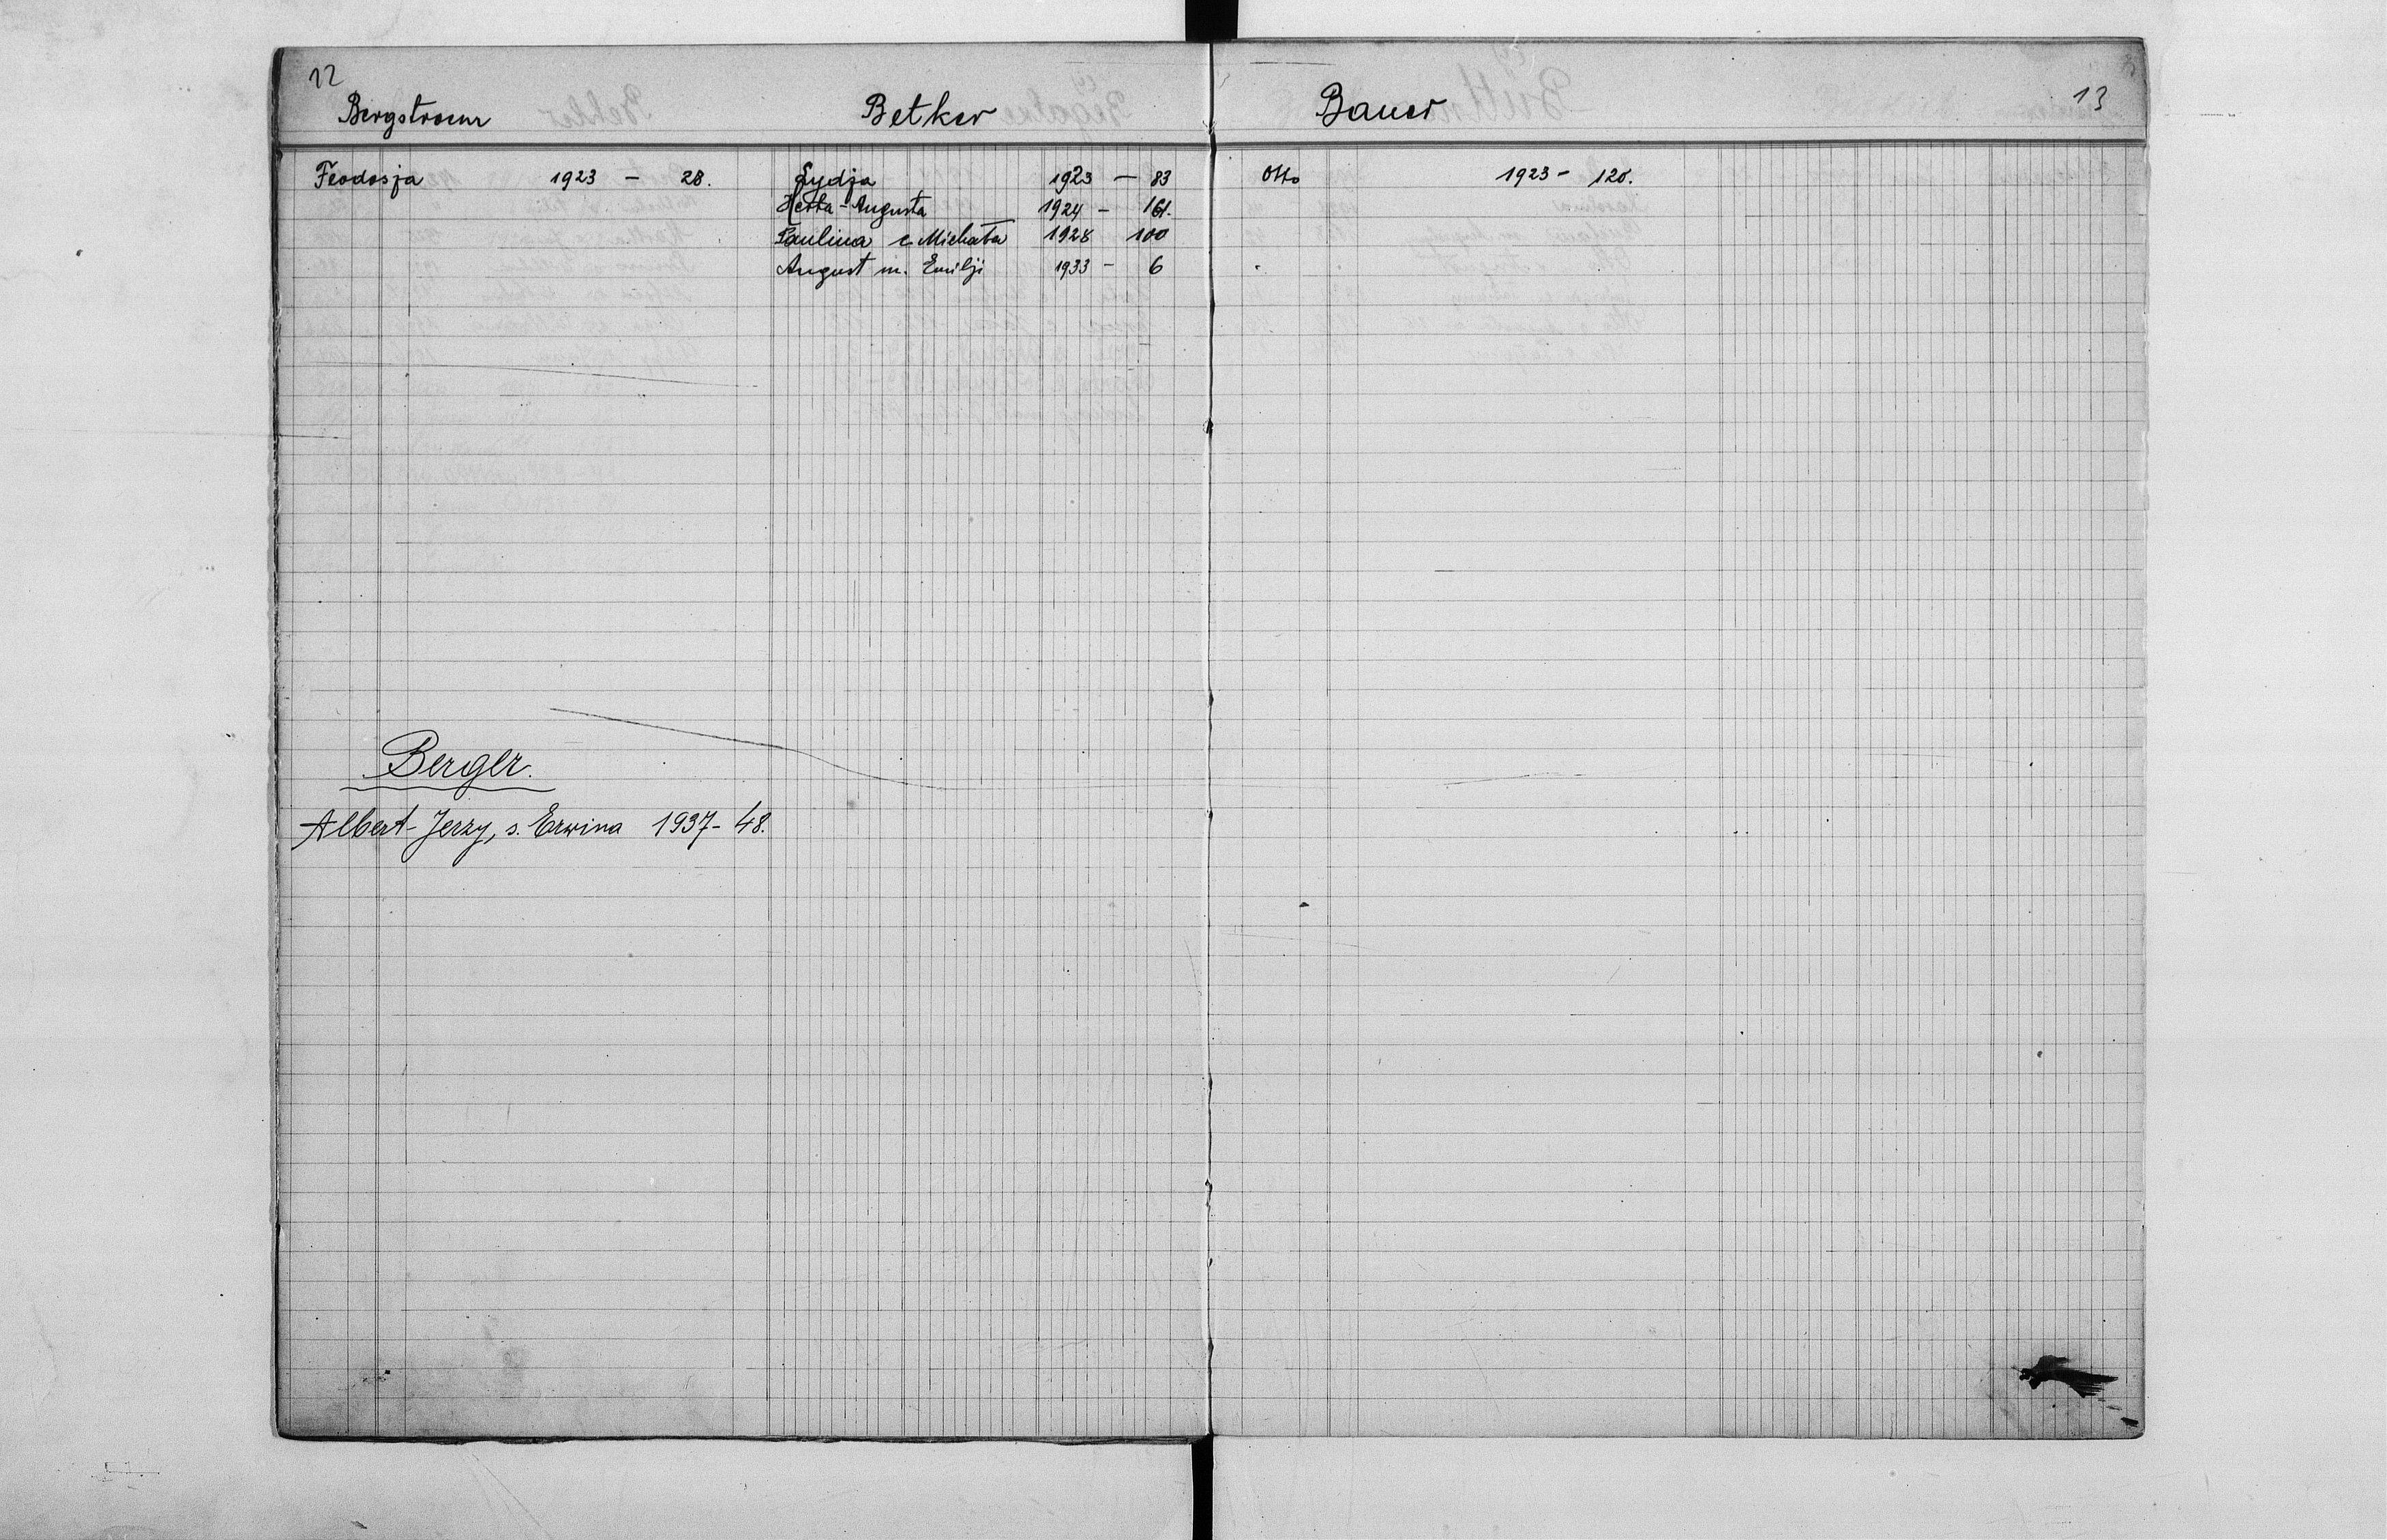 12
Bergstroem
Feodosja 1923 - 28.
Berger.
Albert-Jerzy, s. Erwina 1937-48.
Betker
Lydja 1923 - 83
Herta-Augusta 1924 - 161.
Paulina c. Michała 1928 100
August m. Emilji 1933 - 6
13
Bauer
Otto 1923 - 120.